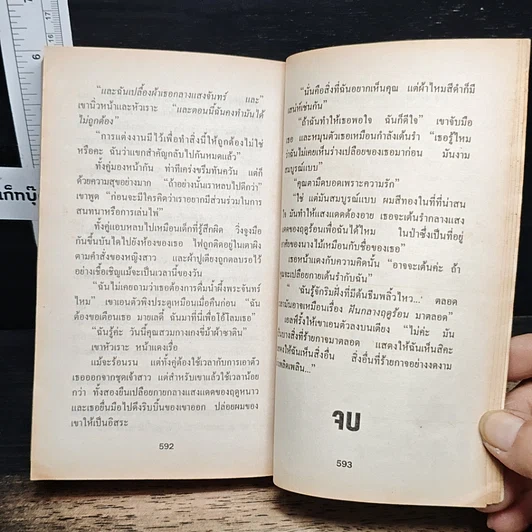 "และฉันเปลื้องผ้าเธอกลางแสงจันทร์ และ"
เขานิ่วหน้าและหัวเราะ "และตอนนี้ฉันคงทำมันได้
ไม่ถูกต้อง"
"การแต่งงานมีไว้เพื่อทำสิ่งนี้ให้ถูกต้องไม่ใช่
หรือคะ ฉันว่าแขกสำคัญกลับไปกันหมดแล้ว"
ทั้งคู่มองหน้ากัน ท่าทีเคร่งขรึมทันควัน แต่ก็
ด้วยความสุขอย่างมาก "ถ้าอย่างนั้นเราหลบไปดีกว่า"
เขาพูด "ก่อนจะมีใครคิดว่าเราอยากมีส่วนร่วมในการ
สนทนาหรือการเล่นไพ่"
ทั้งคู่แอบหลบไปเหมือนเด็กที่รู้สึกผิด วิ่งจูงมือ
กันขึ้นบันไดไปยังห้องของเธอ ไฟถูกติดอยู่ในเตาผิง
ตามคำสั่งของหญิงสาว และผ้าปูเตียงถูกตลบรอไว้
อย่างเชื้อเชิญแม้จะเป็นเวลานี้ของวัน
"ฉันไม่เคยถามว่าเธอต้องการดื่มน้ำผึ้งพระจันทร์
ไหม" เขาเอนตัวพิงประตูเหมือนเมื่อคืนก่อน "ฉัน
ขอบอกเตือนเธอ มายเลดี้ ฉันมาที่นี่เพื่อโอ้โลมเธอ"
"ฉันรู้ค่ะ วันนี้คุณสวมกางเกงขี่ม้าผ้าซาติน"
เขาหัวเราะ หน้าแดงเรื่อ
แม้จะร้อนรน แต่ทั้งคู่ต้องใช้เวลากับการเอาตัว
เธอออกจากชุดเจ้าสาว แต่สำหรับเขาแล้วใช้เวลาน้อย
กว่า ทั้งสองยืนเปลือยกายกลางแสงแดดของฤดูหนาว
และเธอยื่นมือไปดึงริบบิ้นของเขาออก ปล่อยผมของ
เขาให้เป็นอิสระ
592
"นั่นคือสิ่งที่ฉันอยากเห็นคุณ แต่ผ้าไหมสีดำก็มี
เสน่ห์เช่นกัน"
"ถ้าฉันทำให้เธอพอใจ ฉันก็ดีใจ" เขาจับมือ
เธอ และหมุนตัวเธอเหมือนกำลังเต้นรำ "เธอรู้ไหม
ว่าฉันไม่เคยเห็นร่างเปลือยของเธอมาก่อน มันงาม
สมบูรณ์แบบ"
"คุณตามืดบอดเพราะความรัก"
"ใช่ แต่มันสมบูรณ์แบบ ผมสีทองในที่ที่น่าสน
ใจ มันทำให้แสงแดดต้องอาย เธอจะเต้นรำกลางแสง
แดดของฤดูร้อนเพื่อฉันได้ไหม ในป่าซึ่งเป็นที่อยู่
อาศัยของนางไม้เหมือนกับชื่อของเธอ"
เธอหน้าแดงกับความคิดนั้น "อาจจะเต้นค่ะ ถ้า
คุณจะเปลือยกายเต้นรำกับฉัน"
"ฉันรู้จักริมฝั่งที่มีต้นธีมพลิ้วไหว...' ตลอด
มันอาจเหมือนเรื่อง ฝันกลางฤดูร้อน มาตลอด"
เอลฟี่รั้งให้เขาเอนตัวลงบนเตียง "ไม่ค่ะ มัน
เป็นสิ่งที่ร้ายกาจมาตลอด แสดงให้ฉันเห็นสิคะ
แสดงให้ฉันเห็นสิ่งอื่น สิ่งอื่นที่ร้ายกาจอย่างงดงาม
เพลิดเพลิน..."
จบ
593